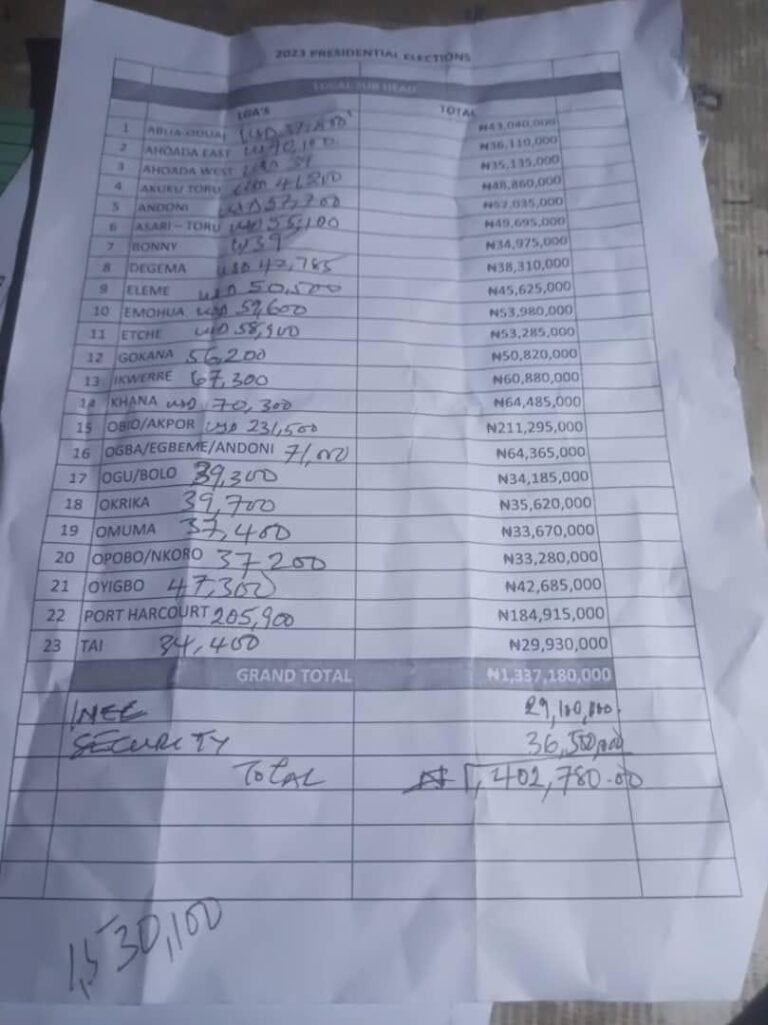 2023 PRESIDENTIAL ELECTIONS
LOCAL SUB HEAD
LGA'S TOTAL
1 ABUA-ODUAL USD ₦43,040,000
2 AHOADA EAST ₦36,110,000
3 AHOADA WEST ₦35,135,000
4 AKUKU TORU ₦48,860,000
5 ANDONI USD 57,200 ₦52,035,000
6 ASARI-TORU USD 55,100 ₦49,695,000
7 BONNY 39 ₦34,975,000
8 DEGEMA USD 42,785 ₦38,310,000
9 ELEME USD 50,500 ₦45,625,000
10 EMOHUA USD 59,600 ₦53,980,000
11 ETCHE USD 58,900 ₦53,285,000
12 GOKANA 56,200 ₦50,820,000
13 IKWERRE 67,300 ₦60,880,000
14 KHANA USD 70,300 ₦64,485,000
15 OBIO/AKPOR USD 231,500 ₦211,295,000
16 OGBA/EGBEME/ANDONI ₦64,365,000
17 OGU/BOLO 39,300 ₦34,185,000
18 OKRIKA 39,700 ₦35,620,000
19 OMUMA 37,400 ₦33,670,000
20 OPOBO/NKORO 37,200 ₦33,280,000
21 OYIGBO 47,300 ₦42,685,000
22 PORT HARCOURT 205,900 ₦184,915,000
23 TAI 34,400 ₦29,930,000
GRAND TOTAL ₦1,337,180,000
INEC 29,100,000.
SECURITY 36,500,000
TOTAL ₦1,402,780.00
1,530,100